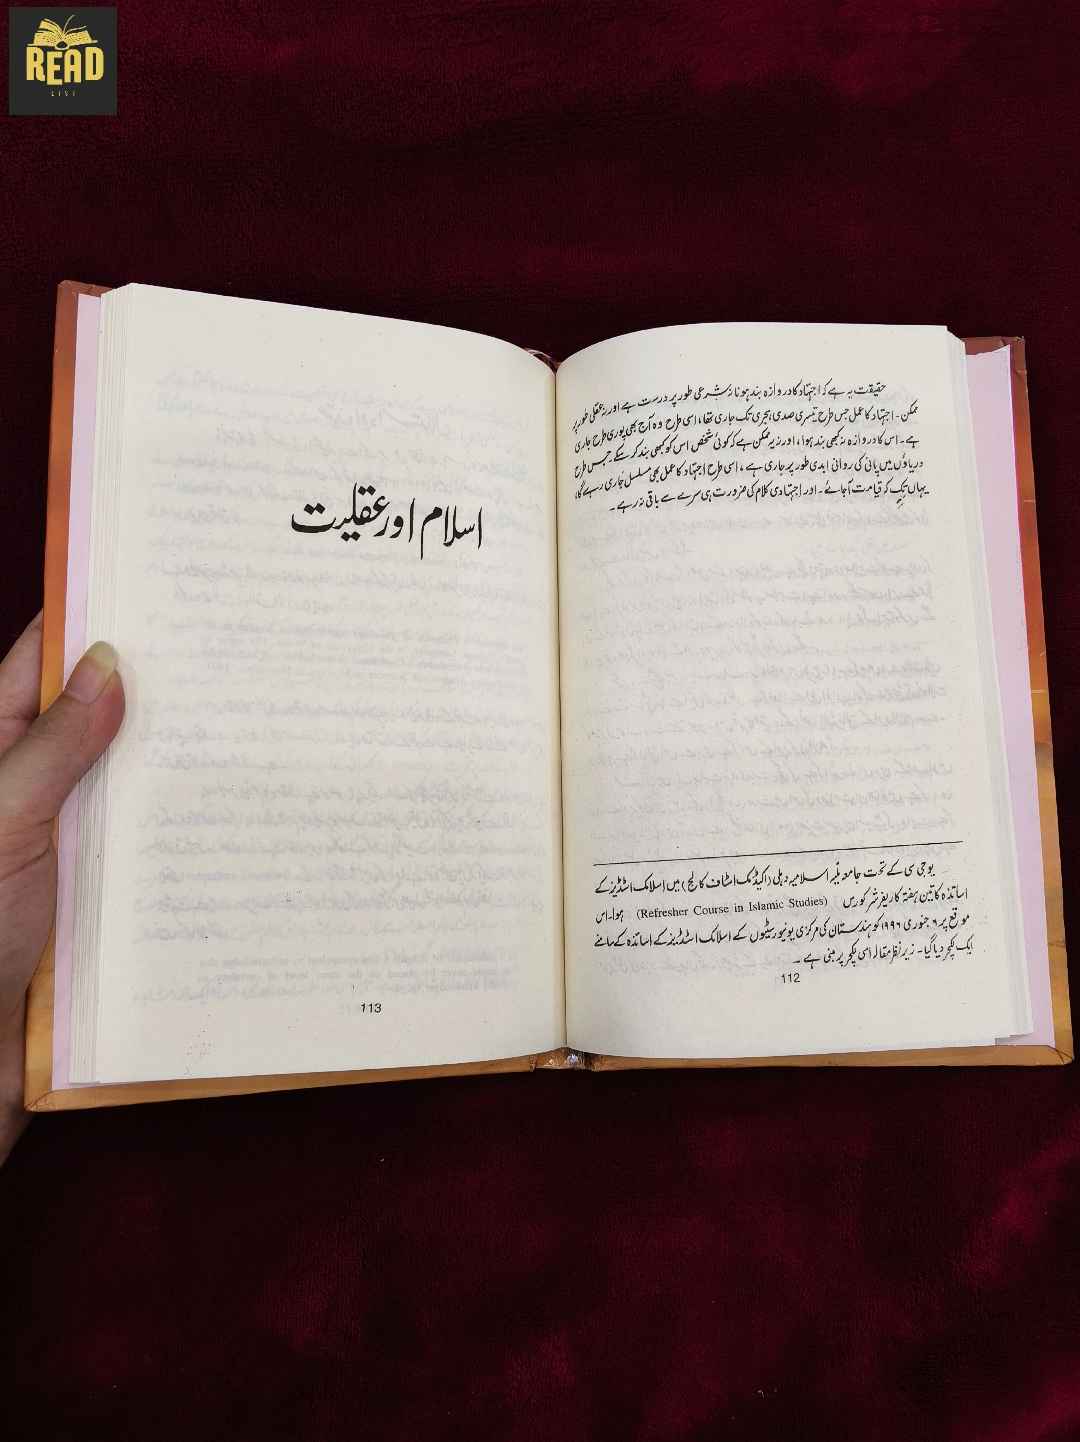 READ
LIST
حقیقت یہ ہے کہ اجتہاد کا دروازہ بند ہونا نہ شرعی طور پر درست ہے اور نہ عقلی طور پر
ممکن۔ اجتہاد کا عمل جس طرح تیسری صدی ہجری تک جاری تھا، اسی طرح وہ آج بھی پوری طرح جاری
ہے۔ اس کا دروازہ نہ کبھی بند ہوا، اور نہ یہ ممکن ہے کہ کوئی شخص اس کو کبھی بند کر سکے۔ جس طرح
دریاؤں میں پانی کی روانی ابدی طور پر جاری ہے، اسی طرح اجتہاد کا عمل بھی مسلسل جاری رہے گا،
یہاں تک کہ قیامت آجائے۔ اور اجتہادی کلام کی ضرورت ہی سرے سے باقی نہ رہے۔
یو جی سی کے تحت جامعہ ملیہ اسلامیہ دہلی (اکیڈمک اسٹاف کالج) میں اسلامک اسٹڈیز کے
اساتذہ کا تین ہفتہ کا ریفرشر کورس (Refresher Course in Islamic Studies) ہوا۔ اس
موقع پر ۶ جنوری ۱۹۹۶ کو ہندستان کی مرکزی یونیورسٹیوں کے اسلامک اسٹڈیز کے اساتذہ کے سامنے
ایک لکچر دیا گیا۔ زیر نظر مقالہ اسی لکچر پر مبنی ہے۔
112
اسلام اور عقلیت
113